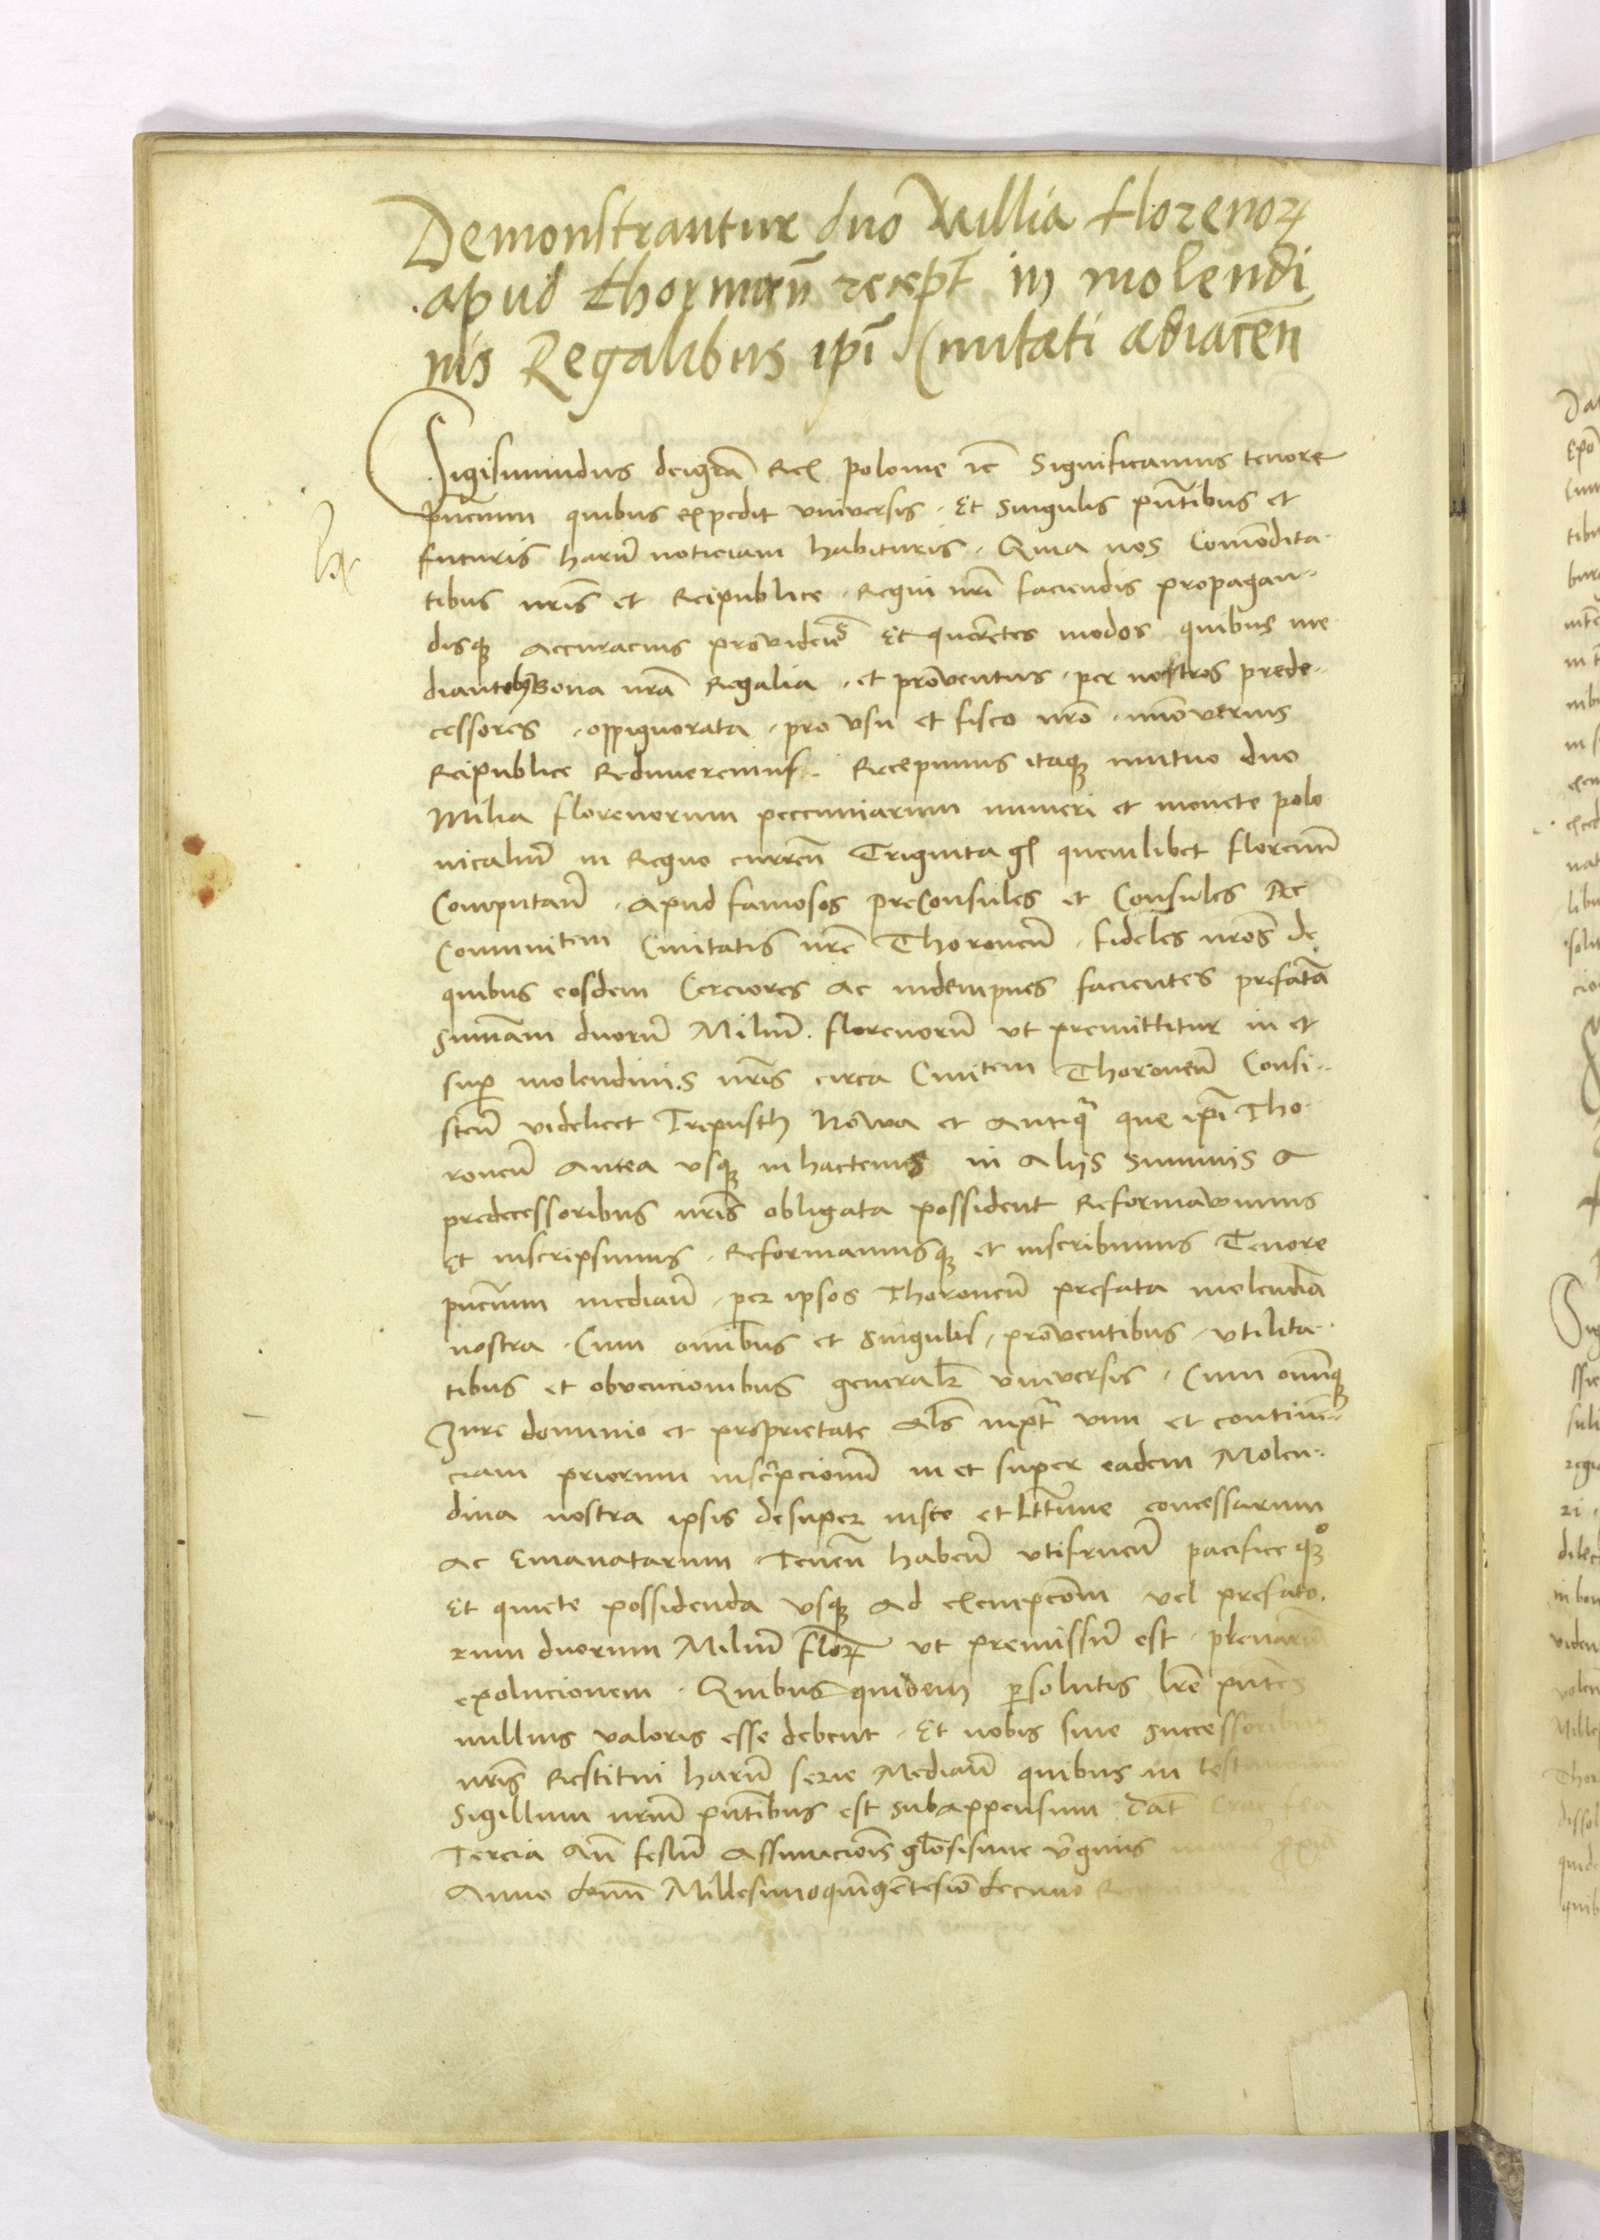 Demonstrantur duo Millia florenoꝝ
apud thorunen̄ recept̄ in molendi
nis Regalibus ipī Ciuitati adiacen̄
Sigismundus dei gr̄a Rex polonie ꝛc̄ Significamus tenore
pn̄cium quibus expedit vniuersis. Et singulis pn̄tibus et
futuris harū noticiam habituris. Quia nos Comōdita-
tibus nr̄is et Reipublice Regni nr̄i faciendis propagan-
disqꝫ accuracius prouiden̄ Et querētes modos quibus me
diantibꝫ Bona nr̄a Regalia et prouentus per nostros prede-
cessores oppignorata pro vsu et fisco nr̄o
Reipublice Redimeremus. Recepimus itaqꝫ mutuo duo
Milia florenorum peccuniarum numeri et monete polo
nicaliū in Regno curren̄ Triginta gr̄ quemlibet florenū
Computan̄. Apud famosos preConsules et Consules Ac
Comunitem Ciuitatis nr̄e Thoronen̄. fideles nr̄os de
quibus eosdem Cerciores ac indempnes facientes prefatā
sum̄am duorū Miliū florenorū vt premittitur in et
suꝑ molendinis nr̄is circa Ciuitem Thoronen̄ Consi-
sten̄ videlicet Trepusch Nowa et antiqua que ipī Tho
ronen̄ antea vsqꝫ in hactenus in Aliis summis a
predecessoribus nr̄is obligata possident Reformauimus
Et inscripsimus. Reformamusqꝫ et inscribimus Tenore
pn̄cium median̄. per ipsos Thoronen̄ prefata molendīa
nostra. Cum om̄ibus et singulis prouentibus vtilita-
tibus et obuencionibus generalr̄ vniuersis. Cum omniqꝫ
Jure dominio et proprietate
ciam priorum inscripcionū in et super eadem Molen-
dina nostra ipsis desuper iuste et lt̄time concessarum
ac Emanatarum Tenen̄ haben̄ vtifruen̄ pacificeqꝫ
Et quiete possidenda vsqꝫ ad exempcōem vel prefato-
rum duorum Miliū floꝝ vt premissū est plenariā
exolucionem. Quibus quidem ꝑsolutis lr̄e pn̄tes
nullius valoris esse debent. Et nobis siue successoribus
nr̄is Restitui harū serie Median̄ quibus in
Sigillum nr̄um pn̄tibus est subappensum. Dat̄
Tercia an̄ festū Assumcionis glōsissime virginis
Anno domī Millesimoquingētesiō decimo